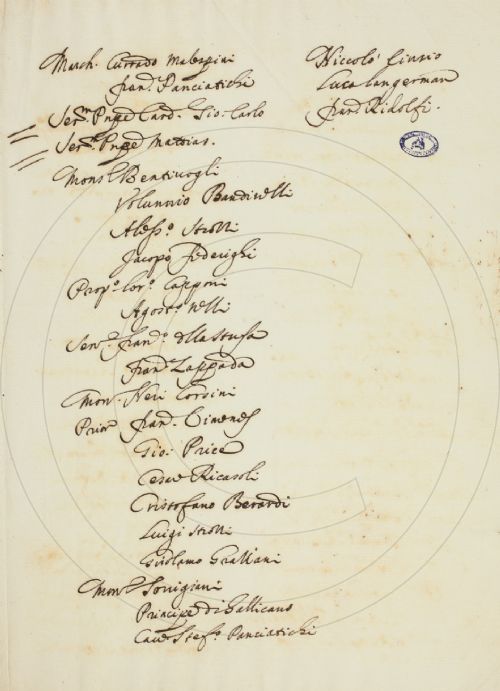 March. Currado Malespini
Fran.º Panciatichi
Ser.mo Pnpe Card. Gio: Carlo
Ser.mo Pnpe Mattias.
Mons.r Bentivogli
Volunnio Bandinelli
Aless.º Strozzi
Jacopo Federighi
Prop.º Capponi
Agost.º Nelli
Sen.r Fran.º della Stufa
Fran.º Zappada
Mon.r Neri Corsini
Prior Fran.º Ximenes
Gio: Price
Cesare Ricasoli
Cristofano Berardi
Luigi Strozzi
Girolamo Graziani
Mons.r
Principe di Gallicano
Cav.r Stef.º Panciatichi
Niccolò
Luca
Fran.º Ridolfi.